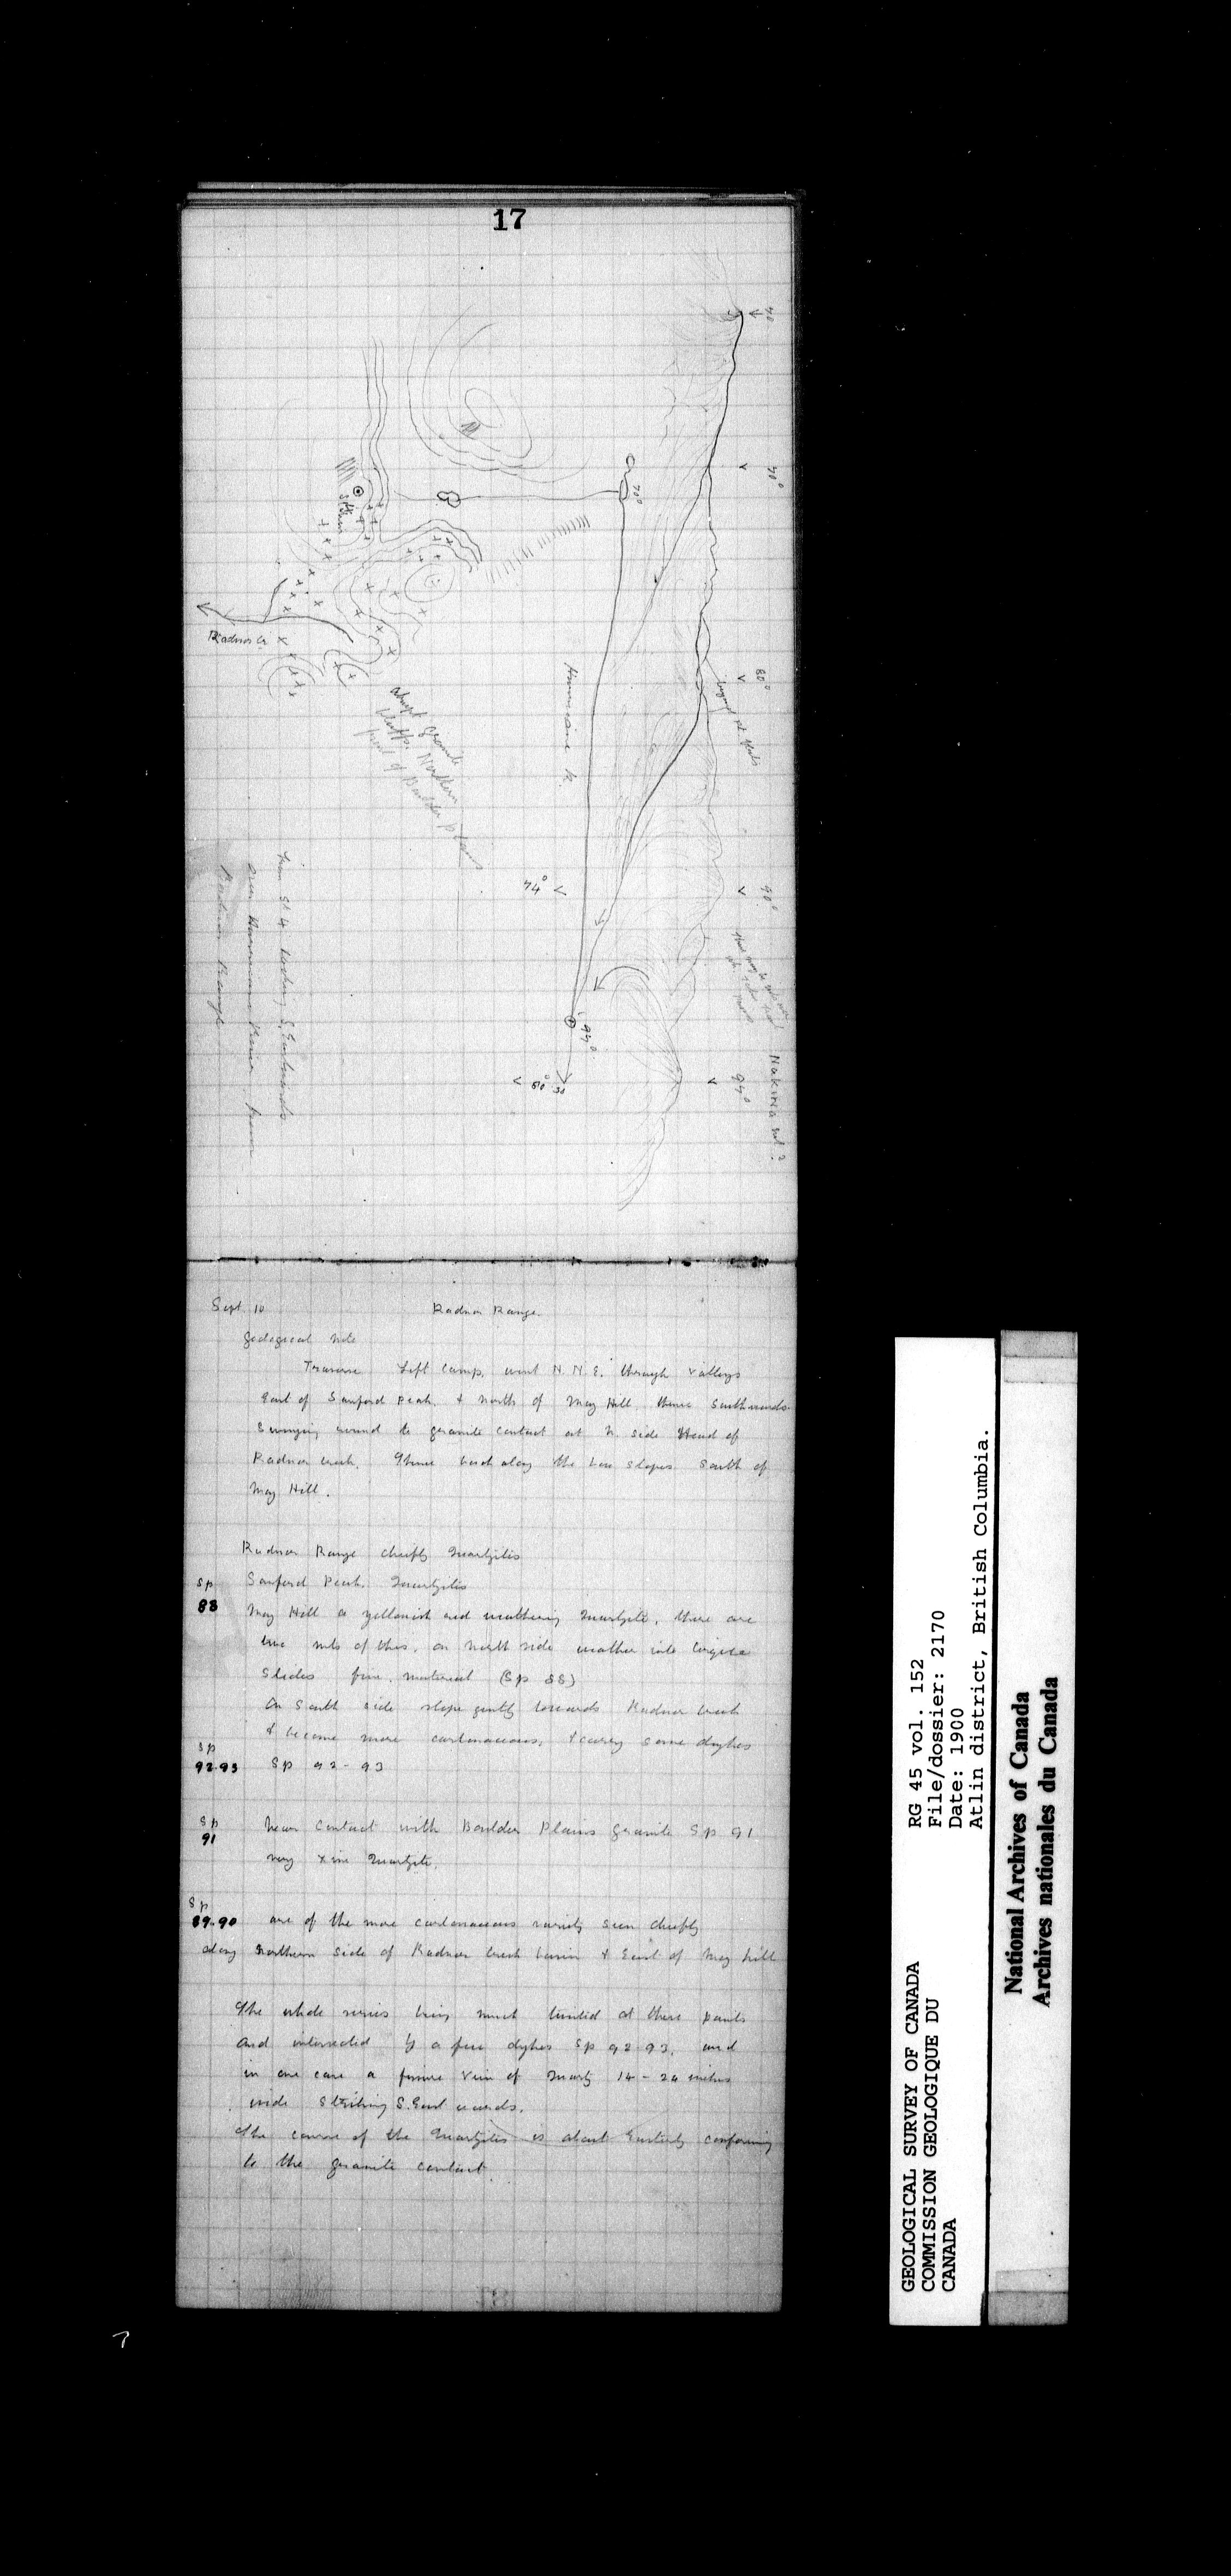 17
70
70°
70°
80°
Hurricane R.
Radnor Cr.
abrupt granite
bluffs. Northern
part of Boulder Plains
74°
90°
94°
94°
80° 30
Nakina val ?
from St 4 looking S. Eastwards
over Hurricane River from
Radnor Range
Sept 10 Radnor Range
Geological Note
Traverse Left camp, went N.N.E. through valleys
East of Sanford Peak, & north of May Hill thence Southwards
Swinging around to granite contact at N. side Head of
Radnor creek. Thence back along the low slopes South of
May Hill.
Radnor Range chiefly Quartzites
Sp
88
Sanford Peak. Quartzites
May Hill a yellowish red weathering Quartzite, there are
two of this, on north side weather into large
Slides fine material (Sp 88)
On South side slope gently towards Radnor creek
& become more carbonaceous, & carry some dykes
Sp
92-93
Sp 92-93
Sp
91
Near Contact with Boulder Plains granite Sp 91
very Quartzite.
Sp
89-90
are of the more carbonaceous variety seen chiefly
along northern side of Radnor creek basin & East of May hill
The whole series being much twisted at these points
and intersected by a few dykes Sp 92 93, and
in one case a fissure vein of Quartz 14-24 inches
wide Striking S. East wards.
The course of the Quartzites is about Easterly conforming
to the granite contact.
GEOLOGICAL SURVEY OF CANADA
COMMISSION GEOLOGIQUE DU
CANADA
RG 45 vol. 152
File/dossier: 2170
Date: 1900
Atlin district, British Columbia.
National Archives of Canada
Archives nationales du Canada